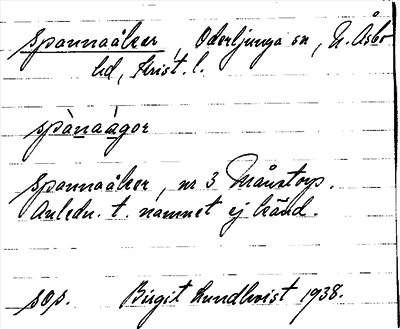 Spannaåker, Oderljunga sn, N. Åsbo
hd, Krist. l.
spànaágor
Spannaåker, nr 3 Månstorp.
Anledn. t. namnet ej känd.
sop. Birgit Lundkvist 1938.